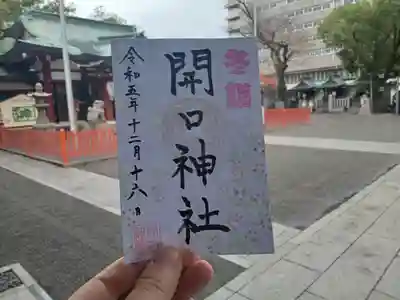 冬詣
開口神社
令和五年十二月十六日